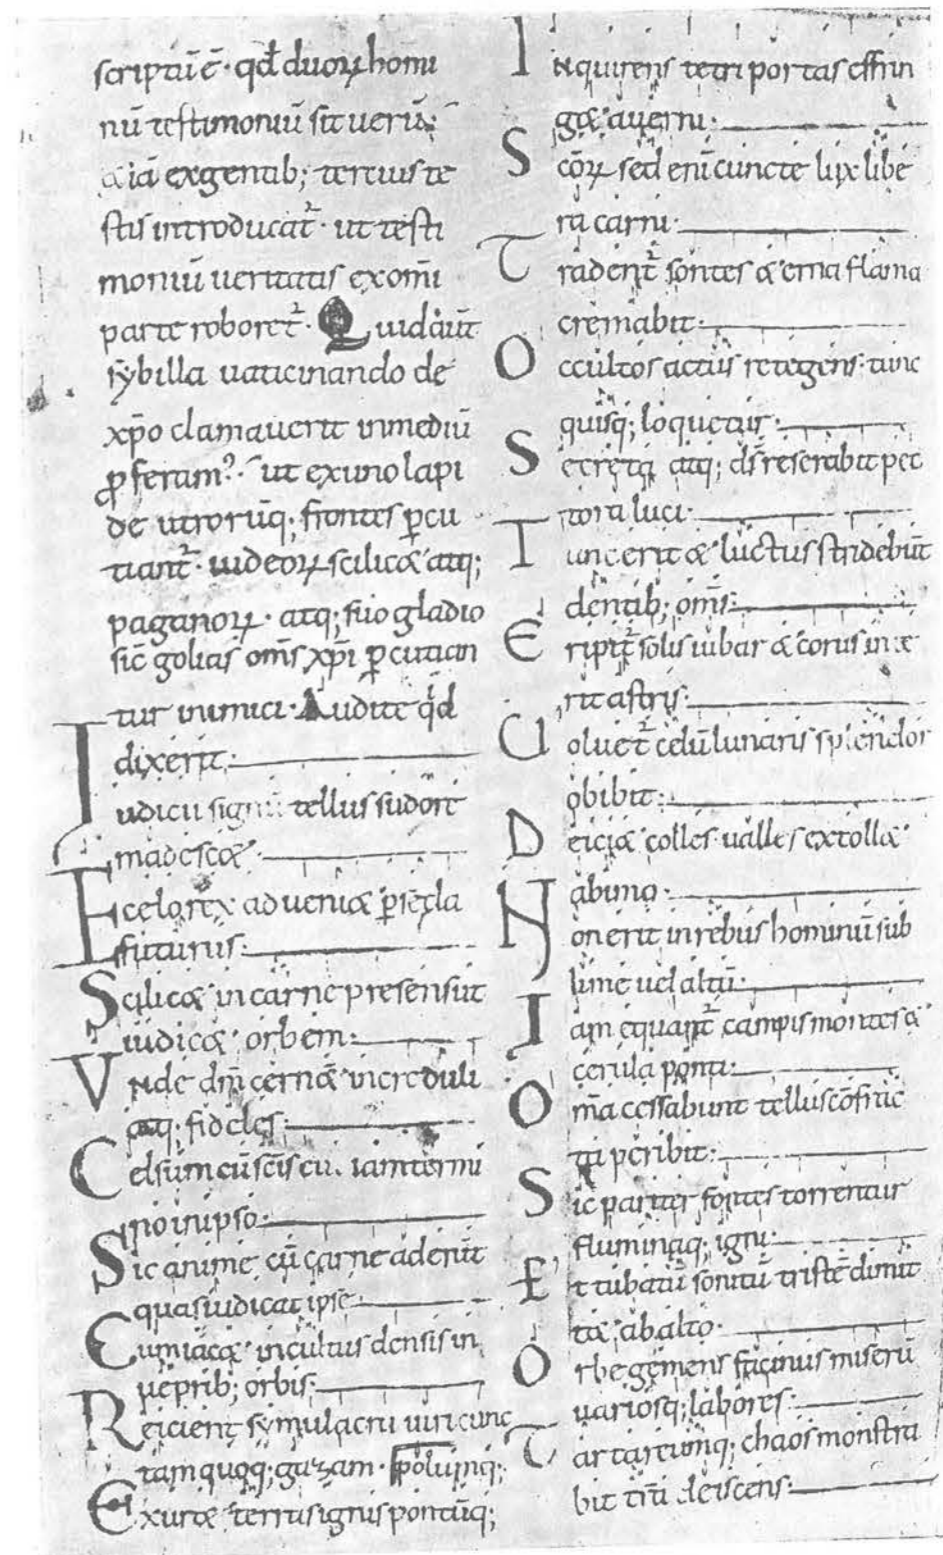 scriptū ē · qđ duoꝝ homi
nū testimoniū sit uerū;
& iā ex gentib; tertius te
stis introducat᷑ · ut testi
moniū ueritatis ex om̄i
parte roboret᷑ · Quid aūt
sybilla uaticinando de
xp̄o clamauerit in mediū
ꝓferam᷒ · ut ex uno lapi
de utrorūq; frontes ꝑcu
tiant᷑ · iudeoꝝ scilic& atq;
paganoꝝ · atq; suo gladio
sic̄ golias om̄s xp̄i ꝑcutian
tur inimici · Audite qđ
dixerit · 
Iudicii signū tellus sudore
madesc& · 
E celo rex adueni& ꝑ secla
futurus · 
Scilic& in carne presens ut
iudic& orbem · 
Vnde dm̄ cernēt increduli
atq; fideles · 
Celsum cū sc̄is iam termi
no in ipso · 
Sic anime cū carne aderūt
quas iudicat ipse · 
Cum iac& incultus densis in
ueprib; orbis · 
Reicient symulacra uiri cunc
tam quoq; gazam ·
Exur& terras ignis pontūq;
polumq;
Inquirens tetri portas effrin
g& auerni · 
Sc̄oꝝ sed enī cuncte lux libe
ra carni · 
Tradent᷑ sontes &erna flāma
cremabit · 
Occultos actus retegens · tunc
quisq; loquetur · 
Secreta atq; ds̄ reserabit pec
tora luci · 
Tunc erit & luctus stridebūt
dentib; om̄s · 
Eripit᷑ solis iubar & chorus inte
rit astris · 
Uoluet᷑ celū lunaris splendor
obibit · 
Deici& colles ualles extoll&
ab imo · 
Non erit in rebus hominū sub
lime uel altū · 
Iam equant᷑ campis montes &
cerula ponti · 
Om̄a cessabunt tellus cōfrac
ta peribit · 
Sic pariter fontes torrentur
fluminaq; igni · 
Et tuba tū sonitū tristē dimit
t& ab alto · 
Orbe gemens facinus miserū
uariosq; labores · 
Tartareumq; chaos monstra
bit tr̄a deiscens ·